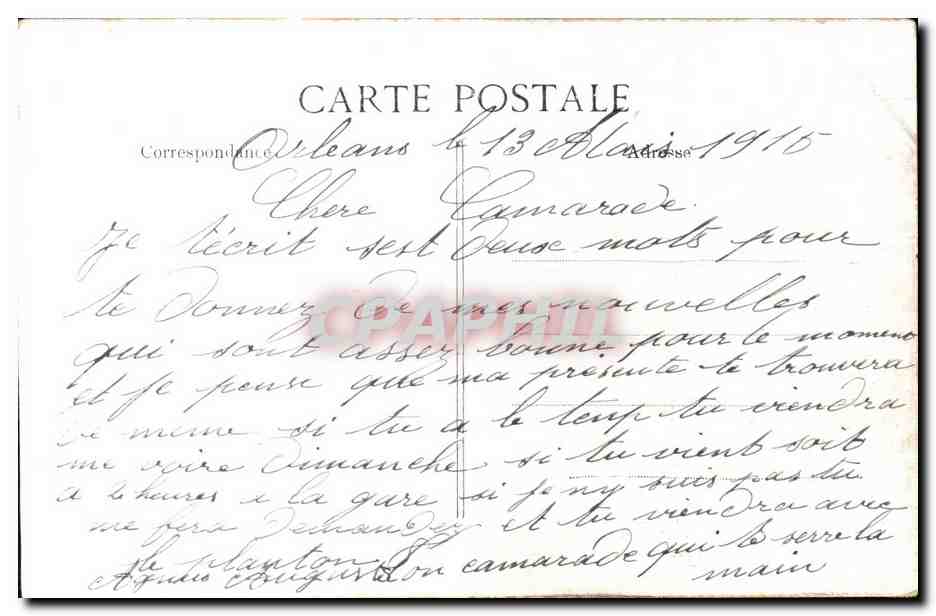 CARTE POSTALE
Correspondance
Adresse
Orleans le 13 Mais 1915
Chere Camarade.
Je t'écrit sest deux mots pour
te donnez de mes nouvelles
qui sont assez bonne pour le moment
et je pense que ma présente te trouvera
de meme si tu a le temp tu viendra
me voire Dimanche si tu vient soit
a 2 heures a la gare si je ny suis pas tu
me fera demandez et tu viendra avec
le planton Ton camarade qui te serre la
main
Auguste
CPAPHIL